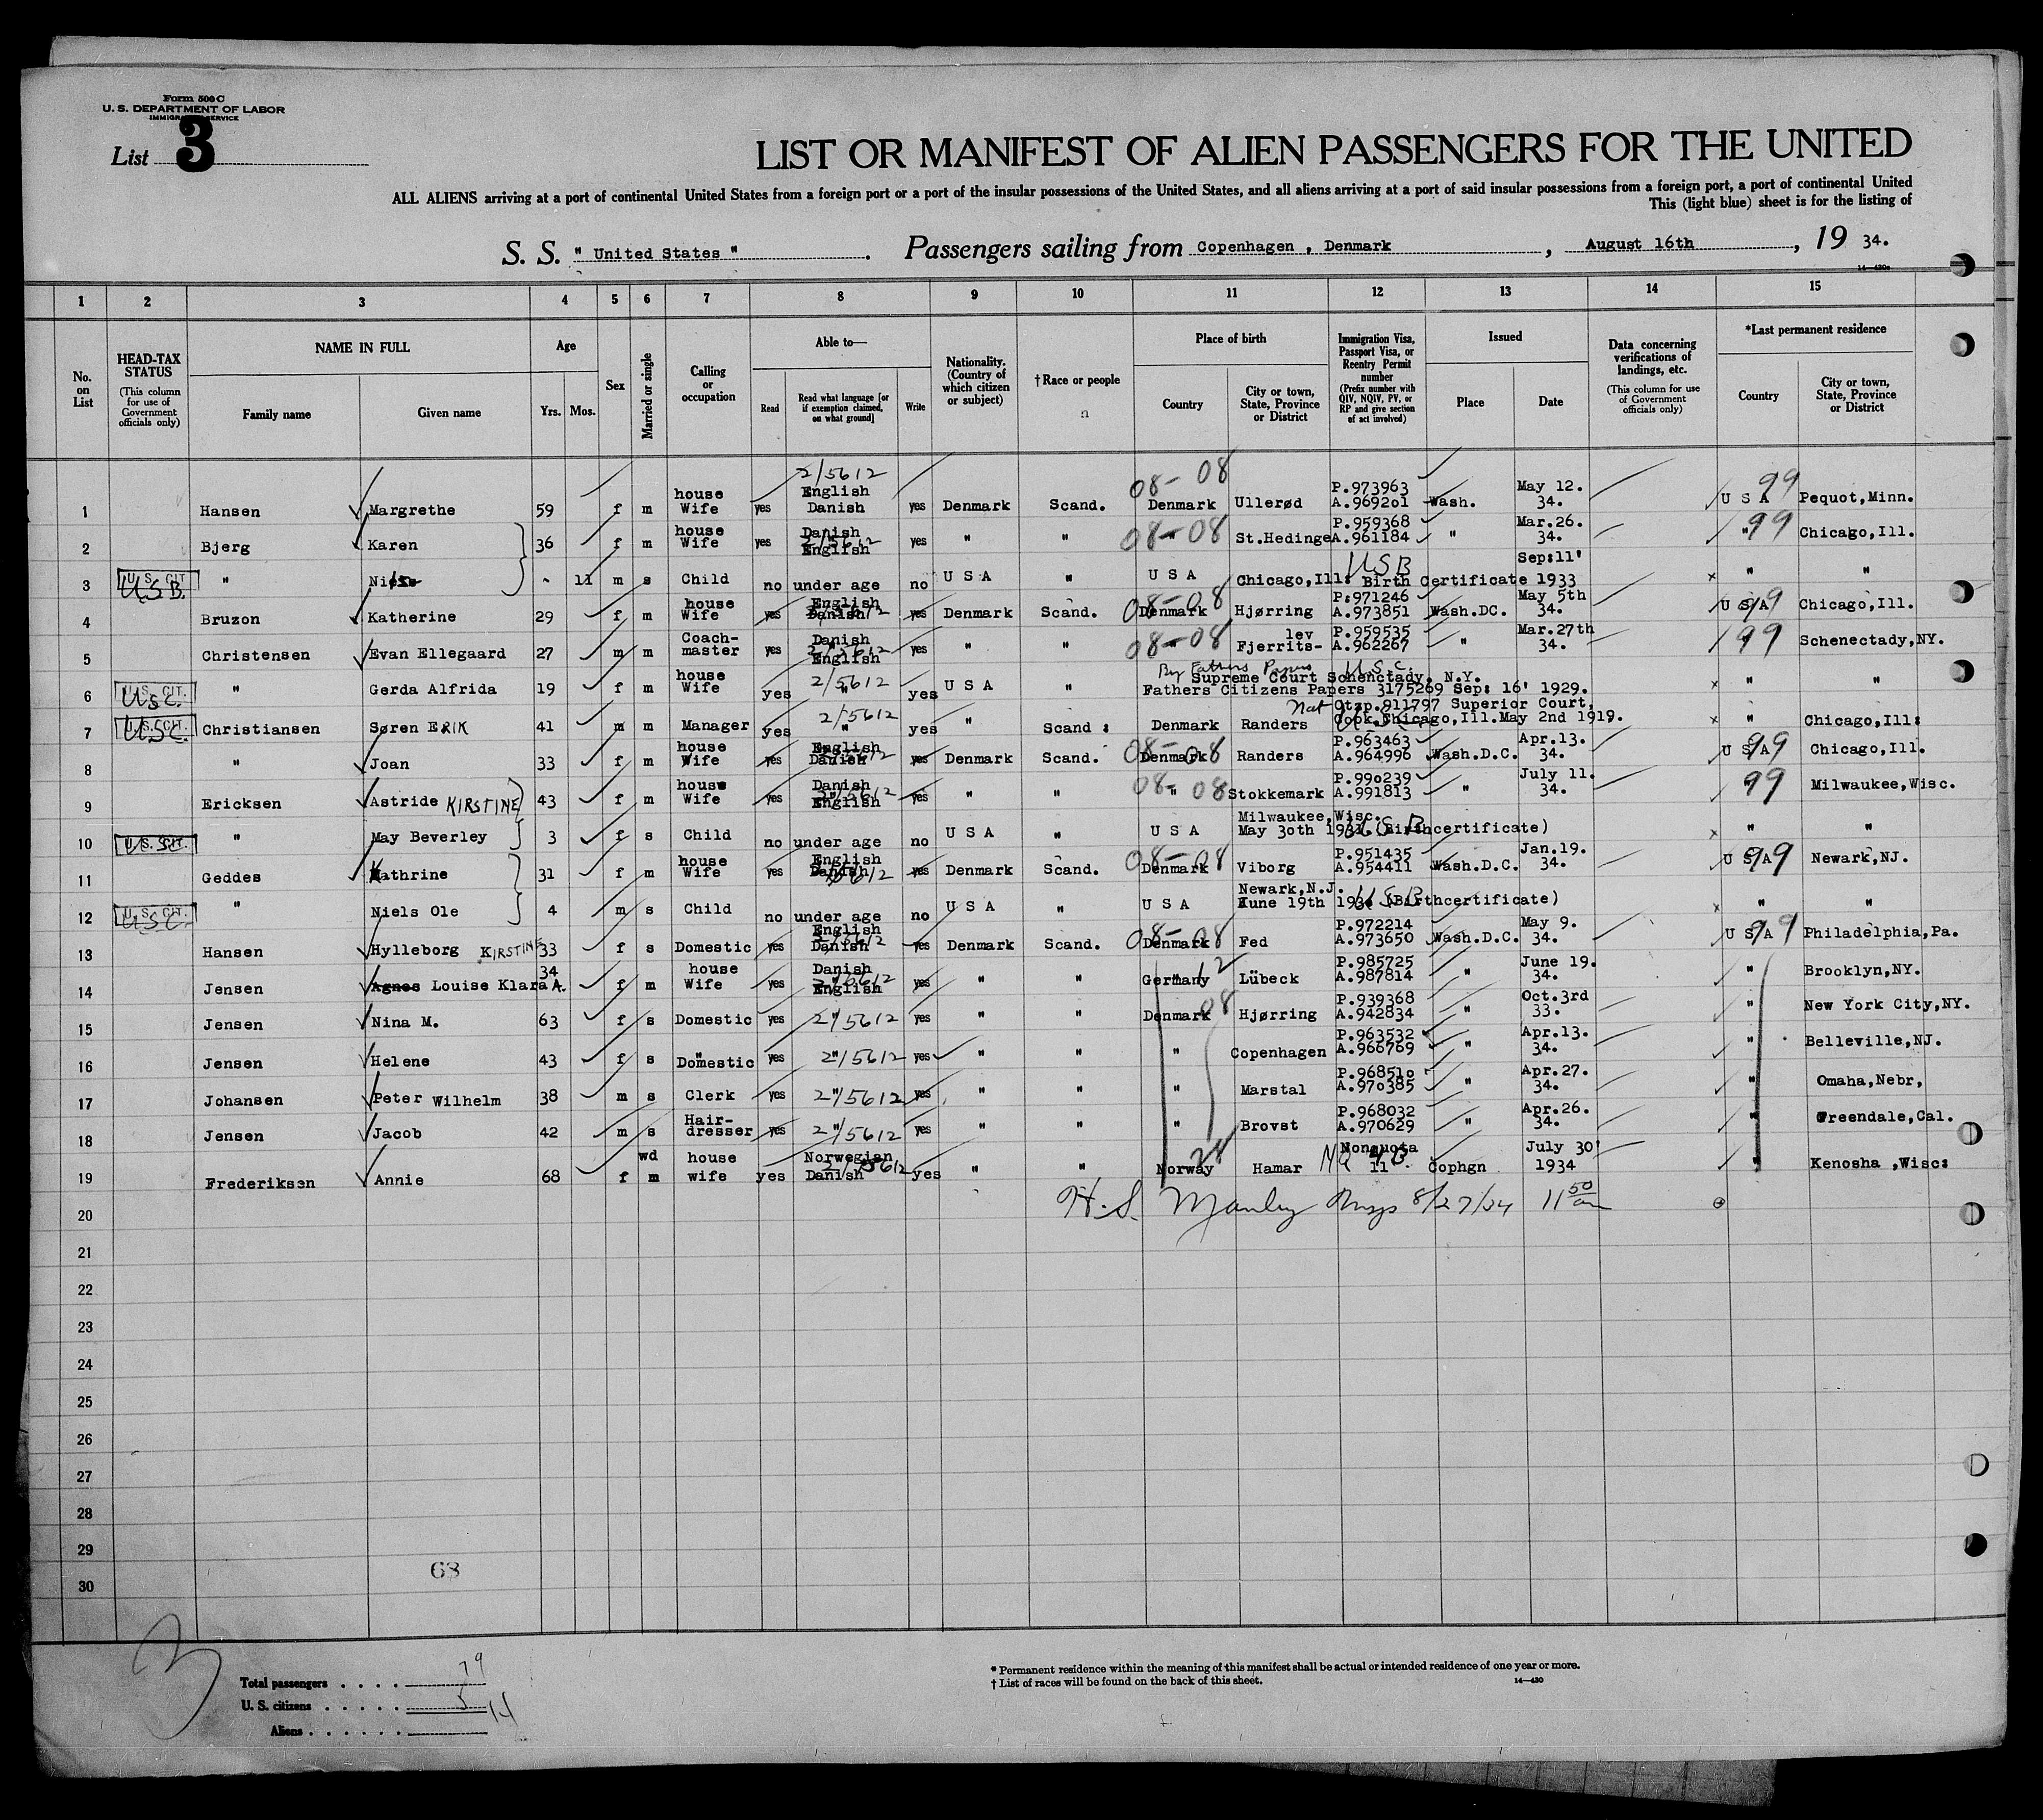 Form 500 C
U. S. DEPARTMENT OF LABOR
IMMIGRATION SERVICE
List 3
LIST OR MANIFEST OF ALIEN PASSENGERS FOR THE UNITED
ALL ALIENS arriving at a port of continental United States from a foreign port or a port of the insular possessions of the United States, and all aliens arriving at a port of said insular possessions from a foreign port, a port of continental United
This (light blue) sheet is for the listing of
S. S. " United States " . Passengers sailing from Copenhagen , Denmark , August 16th , 19 34.
14—430a
1 2 3 4 5 6 7 8 9 10 11 12 13 14 15
No. on List
HEAD-TAX STATUS (This column for use of Government officials only)
NAME IN FULL Family name Given name
Age Yrs. Mos.
Sex
Married or single
Calling or occupation
Able to— Read Read what language [or if exemption claimed, on what ground] Write
Nationality. (Country of which citizen or subject)
† Race or people
Place of birth Country City or town, State, Province or District
Immigration Visa, Passport Visa, or Reentry Permit number (Prefix number with QIV, NQIV, PV, or RP and give section of act involved)
Issued Place Date
Data concerning verifications of landings, etc. (This column for use of Government officials only)
*Last permanent residence Country City or town, State, Province or District
1 Hansen Margrethe 59 f m house Wife yes English Danish 2/5612 yes Denmark Scand. 08-08 Denmark Ullerød P.973963 A.969201 Wash. May 12. 34. U S A 99 Pequot,Minn.
2 Bjerg Karen 36 f m house Wife yes Danish English 2/5612 yes " " 08-08 " St.Hedinge P.959368 A.961184 " Mar.26. 34. " 99 Chicago,Ill.
3 U. S. CIT. USB. " - 11 m s Child no under age no U S A " U S A Chicago,Ill: USB Birth Certificate Sep:11' 1933 " "
4 Bruzon Katherine 29 f m house Wife yes English Danish yes Denmark Scand. 08-08 Denmark Hjørring P:971246 A.973851 Wash.DC. May 5th 34. U S A 99 Chicago,Ill.
5 Christensen Evan Ellegaard 27 m m Coach-master yes Danish English 2/5612 yes " " 08-08 " Fjerrits-lev P.959535 A.962267 " Mar.27th 34. " 99 Schenectady,NY.
6 U. S. CIT. USC. " Gerda Alfrida 19 f m house Wife yes 2/5612 " yes U S A " By Fathers Papers U.S.C. Supreme Court Schenctady, N.Y. Fathers Citizens Papers 3175269 Sep: 16' 1929. " "
7 U. S. CIT. USC. Christiansen Søren ERIK 41 m m Manager yes 2/5612 " yes " Scand : Denmark Randers Nat Ctzp.911797 Superior Court, Cook,Chicago,Ill.May 2nd 1919. " Chicago,Ill:
8 " Joan 33 f m house Wife yes English Danish yes Denmark Scand. 08-08 Denmark Randers P.963463 A.964996 Wash.D.C. Apr.13. 34. U S A 99 Chicago,Ill.
9 Ericksen Astride KIRSTINE 43 f m house Wife yes Danish English yes " " 08-08 " Stokkemark P.990239 A.991813 " July 11. 34. " 99 Milwaukee,Wisc.
10 U. S. CIT. " May Beverley 3 f s Child no under age no U S A " U S A Milwaukee,Wisc. May 30th 1931. USB (Birthcertificate) " "
11 Geddes Kathrine 31 f m house Wife yes English Danish yes Denmark Scand. 08-08 Denmark Viborg P.951435 A.954411 Wash.D.C. Jan.19. 34. U S A 99 Newark,NJ.
12 U. S. CIT. USC. " Niels Ole 4 m s Child no under age no U S A " U S A Newark,N.J. June 19th USB (Birthcertificate) " "
13 Hansen Hylleborg KIRSTINE 33 f s Domestic yes English Danish 2/5612 yes Denmark Scand. 08-08 Denmark Fed P.972214 A.973650 Wash.D.C. May 9. 34. U S A 99 Philadelphia,Pa.
14 Jensen Agnes Louise Klara A. 34 f m house Wife yes Danish English yes " " Germany 12 Lübeck P.985725 A.987814 " June 19. 34. " Brooklyn,NY.
15 Jensen Nina M. 63 f s Domestic yes 2/5612 " yes " " Denmark 08 Hjørring P.939368 A.942834 " Oct.3rd 33. " New York City,NY.
16 Jensen Helene 43 f s Domestic yes 2/5612 " yes " " " Copenhagen P.963532 A.966769 " Apr.13. 34. " Belleville,NJ.
17 Johansen Peter Wilhelm 38 m s Clerk yes 2/5612 " yes " " " Marstal P.968510 A.970385 " Apr.27. 34. " Omaha,Nebr,
18 Jensen Jacob 42 m s Hair-dresser yes 2/5612 " yes " " " Brovst P.968032 A.970629 " Apr.26. 34. " Greendale,Cal.
19 Frederiksen Annie 68 f wd m house wife yes Norwegian Danish yes " " Norway 28 Hamar NQ 4B Nonquota 11 Cophgn July 30' 1934 " Kenosha ,Wisc:
20 H.S. Manley 8/27/34 11 50 am
21
22
23
24
25
26
27
28
29
30
63
3
Total passengers . . . . 19
U. S. citizens . . . . . 5
Aliens . . . . . . 14
* Permanent residence within the meaning of this manifest shall be actual or intended residence of one year or more.
† List of races will be found on the back of this sheet.
14—430